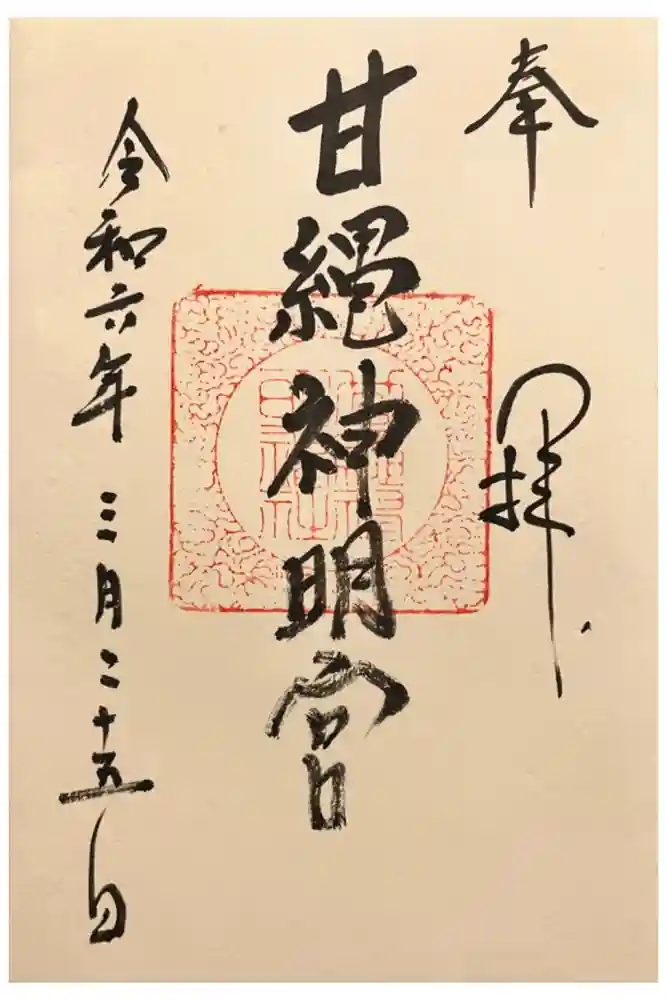 奉拝
甘縄神明宮
令和六年 三月二十五日